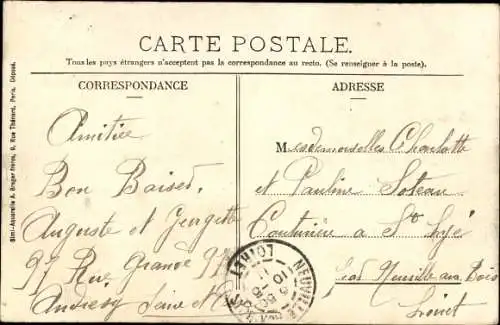 CARTE POSTALE.
Tous les pays étrangers n'acceptent pas la correspondance au recto. (Se renseigner à la poste).
CORRESPONDANCE
ADRESSE
Amitiée
Bon Baiser.
Auguste et Georgette
97 Rue Grande 97
Andresy Seine et
Mesdemoiselles Charlotte
et Pauline Soteau
Couturière a St
Neuville aux Bois
Loiret
NEUVILLE LOIRET
Simi-Aquarelle A. Breger frères, 9, Rue Thénard, Paris. Déposé.